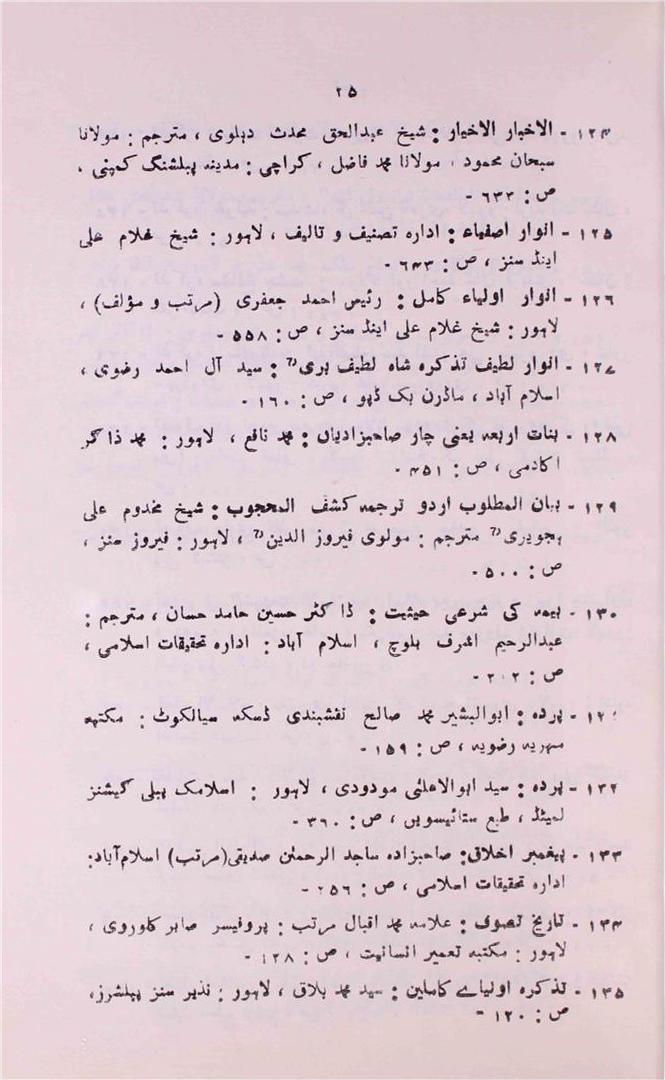 ۲۵
۱۲۴ - الاخبار الاخیار : شیخ عبدالحق محدث دہلوی ، مترجم : مولانا
سبحان محمود ، مولانا محمد فاضل ، کراچی : مدینہ پبلشنگ کمپنی ،
ص : ۶۳۳ -
۱۲۵ - انوار اصفیاء : ادارہ تصنیف و تالیف ، لاہور : شیخ غلام علی
اینڈ سنز ، ص : ۶۴۳ -
۱۲۶ - انوار اولیاء کامل : رئیس احمد جعفری (مرتب و مؤلف) ،
لاہور : شیخ غلام علی اینڈ سنز ، ص : ۵۵۸ -
۱۲۷ - انوار لطیف تذکرہ شاہ لطیف بریؒ : سید آل احمد رضوی ،
اسلام آباد ، ماڈرن بک ڈپو ، ص : ۱۶۰ -
۱۲۸ - بنات اربعہ یعنی چار صاحبزادیاں : محمد نافع ، لاہور : محمد ذاکر
اکادمی ، ص : ۴۵۱ -
۱۲۹ - بیان المطلوب اردو ترجمہ کشف المحجوب : شیخ مخدوم علی
ہجویریؒ مترجم : مولوی فیروز الدینؒ ، لاہور : فیروز سنز ،
ص : ۵۰۰ -
۱۳۰ - بیمہ کی شرعی حیثیت : ڈاکٹر حسین حامد حسان ، مترجم :
عبدالرحیم اشرف بلوچ ، اسلام آباد : ادارہ تحقیقات اسلامی ،
ص : ۲۰۲ -
پردہ : ابوالبشیر محمد صالح نقشبندی ڈسکہ سیالکوٹ : مکتبہ
مہریہ رضویہ ، ص : ۱۵۹ -
۱۳۲ - پردہ : سید ابوالاعلیٰ مودودی ، لاہور : اسلامک پبلی کیشنز
لمیٹڈ ، طبع ستائیسویں ، ص : ۳۶۰ -
۱۳۳ - پیغمبر اخلاق : صاحبزادہ ساجد الرحمٰن صدیقی (مرتب) اسلام آباد :
ادارہ تحقیقات اسلامی ، ص : ۲۵۶ -
۱۳۴ - تاریخ تصوف : علامہ محمد اقبال مرتب : پروفیسر صابر کلوروی ،
لاہور : مکتبہ تعمیر انسانیت ، ص : ۱۲۸ -
۱۳۵ - تذکرہ اولیاے کاملین : سید محمد بلاق ، لاہور : نذیر سنز پبلشرز ،
ص : ۱۲۰ -